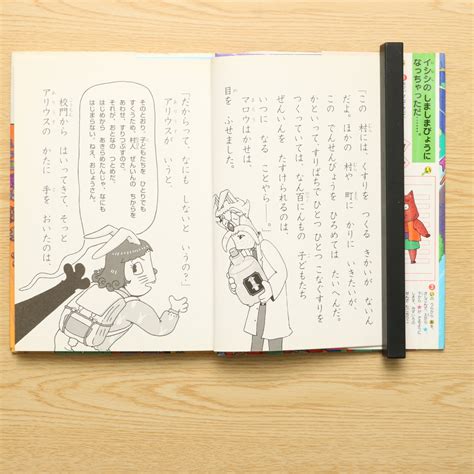 「この 村には、くすりを つくる きかいが ないん
だよ。ほかの 村や 町に かりに いきたいが、
この でんせんびょうを ひろめては たいへんだ。
かといって すりばちで ひとつ ひとつ こなぐすりを
つくっていては、なん百にんもの 子どもたち
ぜんいんを たすけられるのは、
いつに なる ことやら――。」
マロウはかせは、
目を ふせました。
「だからって、なにも しないと いうのっ?」
アリウスが いうと、
そのとおり。子どもたちを ひとりでも
すくうため、村人 ぜんいんの ちからを
あわせ、すりつぶすのさ。
それが、おとなの つとめだ。
はじめから あきらめたんじゃ、なにも
はじまらない。ねえ、おじょうさん。
校門から はいってきて、そっと
アリウスの かたに 手を おいたのは、
イシシの しましまびょうに
なっちゃったただ……